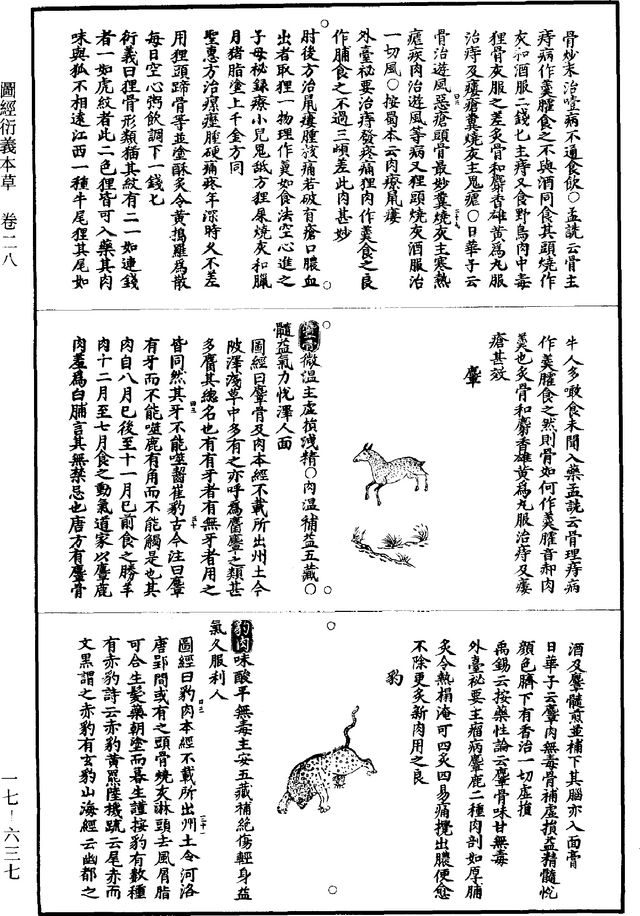 圖經衍義本草　卷二八
一七－六三七
骨炒末治噎病不通食飲○孟詵云骨主
痔病作羹臛食之不與酒同食其頭燒作
灰和酒服二錢匕主痔又食野鳥肉中毒
狸骨灰服之差炙骨和麝香雄黃爲丸服
治痔及瘻瘡糞燒灰主鬼瘧○日華子云
骨治遊風惡瘡頭骨最妙糞燒灰主寒熱
瘧疾肉治遊風等病又狸頭燒灰酒服治
一切風○按蜀本云肉療鼠瘻
外臺祕要治痔發疼痛狸肉作羹食之良
作脯食之不過三頓差此肉甚妙
肘後方治鼠瘻腫核痛若破有瘡口膿血
出者取狸一物理作羹如食法空心進之
子母秘錄療小兒鬼舐方狸屎燒灰和臘
月猪脂塗上千金方同
聖惠方治瘰癧腫硬痛疼年深時久不差
用狸頭蹄骨等並塗酥炙令黃搗羅爲散
每日空心粥飲調下一錢匕
衍義曰狸骨形類猫其紋有二一如連錢
者一如虎紋者此二色狸皆可入藥其肉
味與狐不相遠江西一種牛尾狸其尾如
牛人多啖食未聞入藥孟詵云骨理痔病
作羹臛食之然則骨如何作羹臛音郝肉
羹也炙骨和麝香雄黃爲丸服治痔及瘻
瘡甚效
麞
麞骨微温主虛損洩精○肉温補益五藏○
髓益氣力悅澤人面
圖經曰麞骨及肉本經不載所出州土今
陂澤淺草中多有之亦呼爲麕麞之類甚
多麕其總名也有有牙者有無牙者用之
皆同然其牙不能噬齧崔豹古今注曰麞
有牙而不能噬鹿有角而不能觸是也其
肉自八月已後至十一月已前食之勝羊
肉十二月至七月食之動氣道家以麞鹿
肉羞爲白脯言其無禁忌也唐方有麞骨
酒及麞髓煎並補下其腦亦入面膏
日華子云麞肉無毒骨補虛損益精髓悅
顏色臍下有香治一切虛損
禹錫云按藥性論云麞骨味甘無毒
外臺祕要主瘤病麞鹿二種肉剖如厚脯
炙令熱搨淹可四炙四易痛攪出膿便愈
不除更炙新肉用之良
豹
豹肉味酸平無毒主安五藏補絶傷輕身益
氣久服利人
圖經曰豹肉本經不載所出州土今河洛
唐郢間或有之頭骨燒灰淋頭去風屑脂
可合生髮藥朝塗而暮生謹按豹有數種
有赤豹詩云赤豹黃羆陸機疏云尾赤而
文黑謂之赤豹有玄豹山海經云幽都之